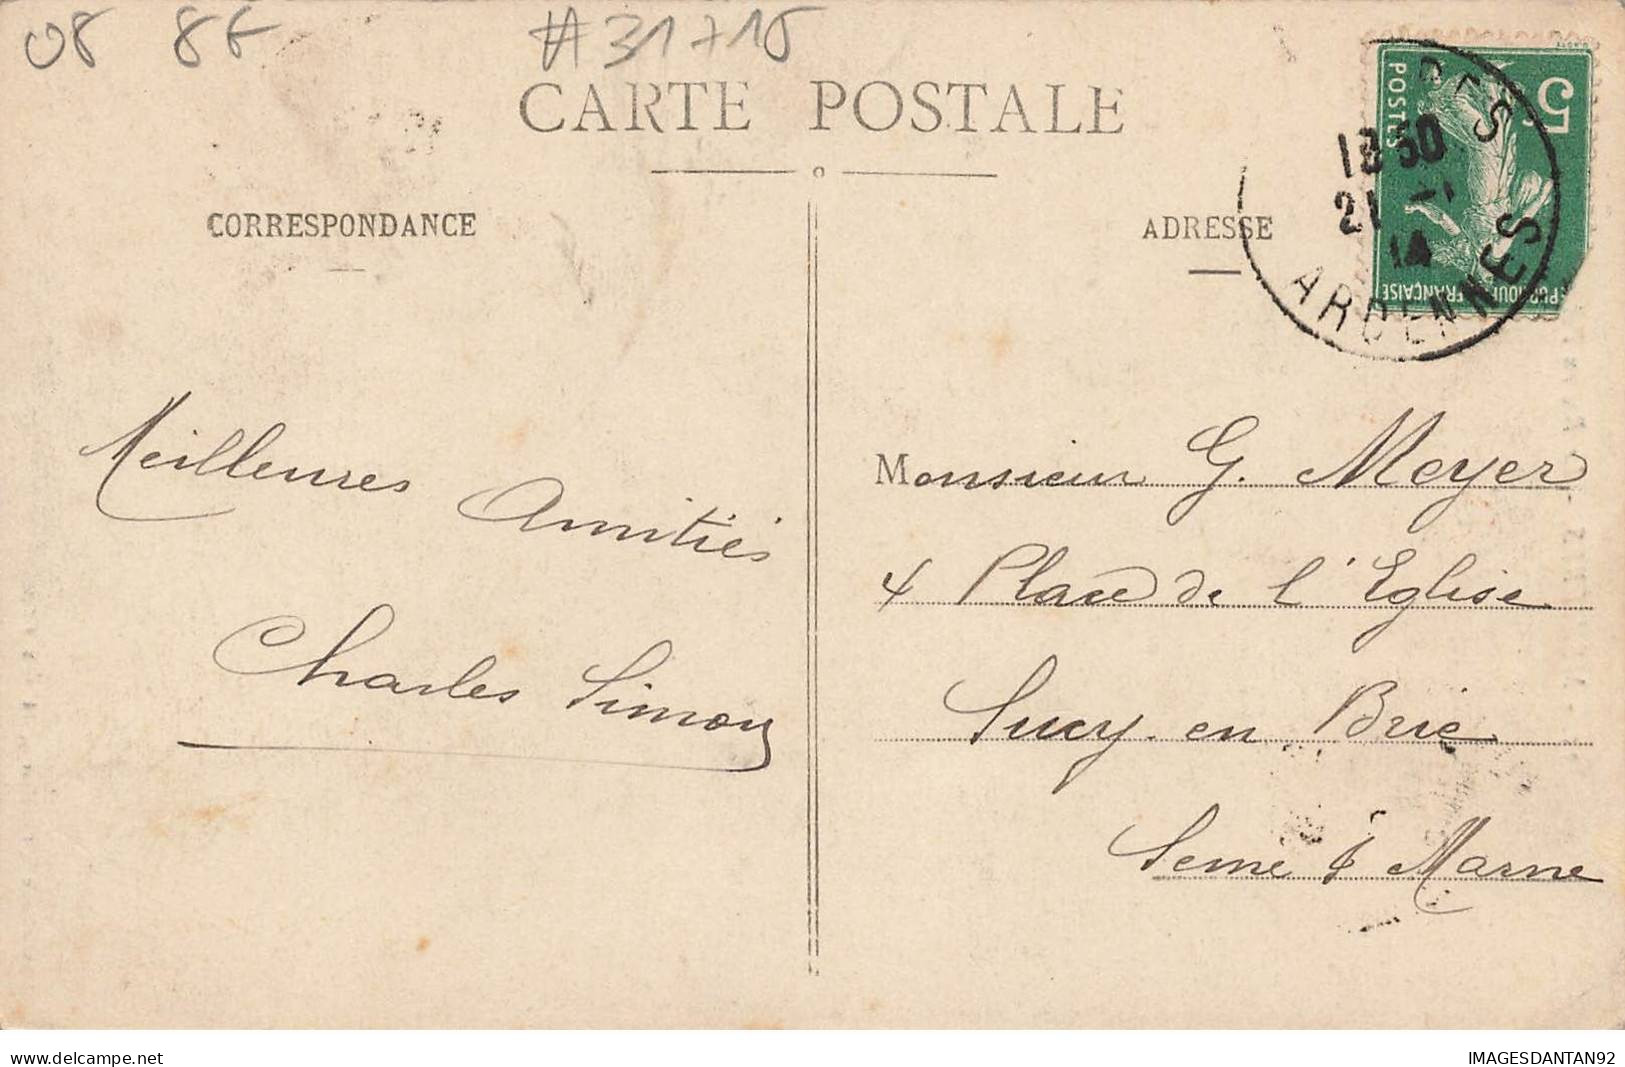 08 8E #31715
CARTE POSTALE
CORRESPONDANCE
ADRESSE
5c
POSTES
18 50
21 -1
14
ARDENNES
Meilleures Amitiés
Charles Simon
Monsieur G. Meyer
4 Place de l'Eglise
Sucy en Brie
Seine & Marne
delcampe.net
IMAGESDANTAN92